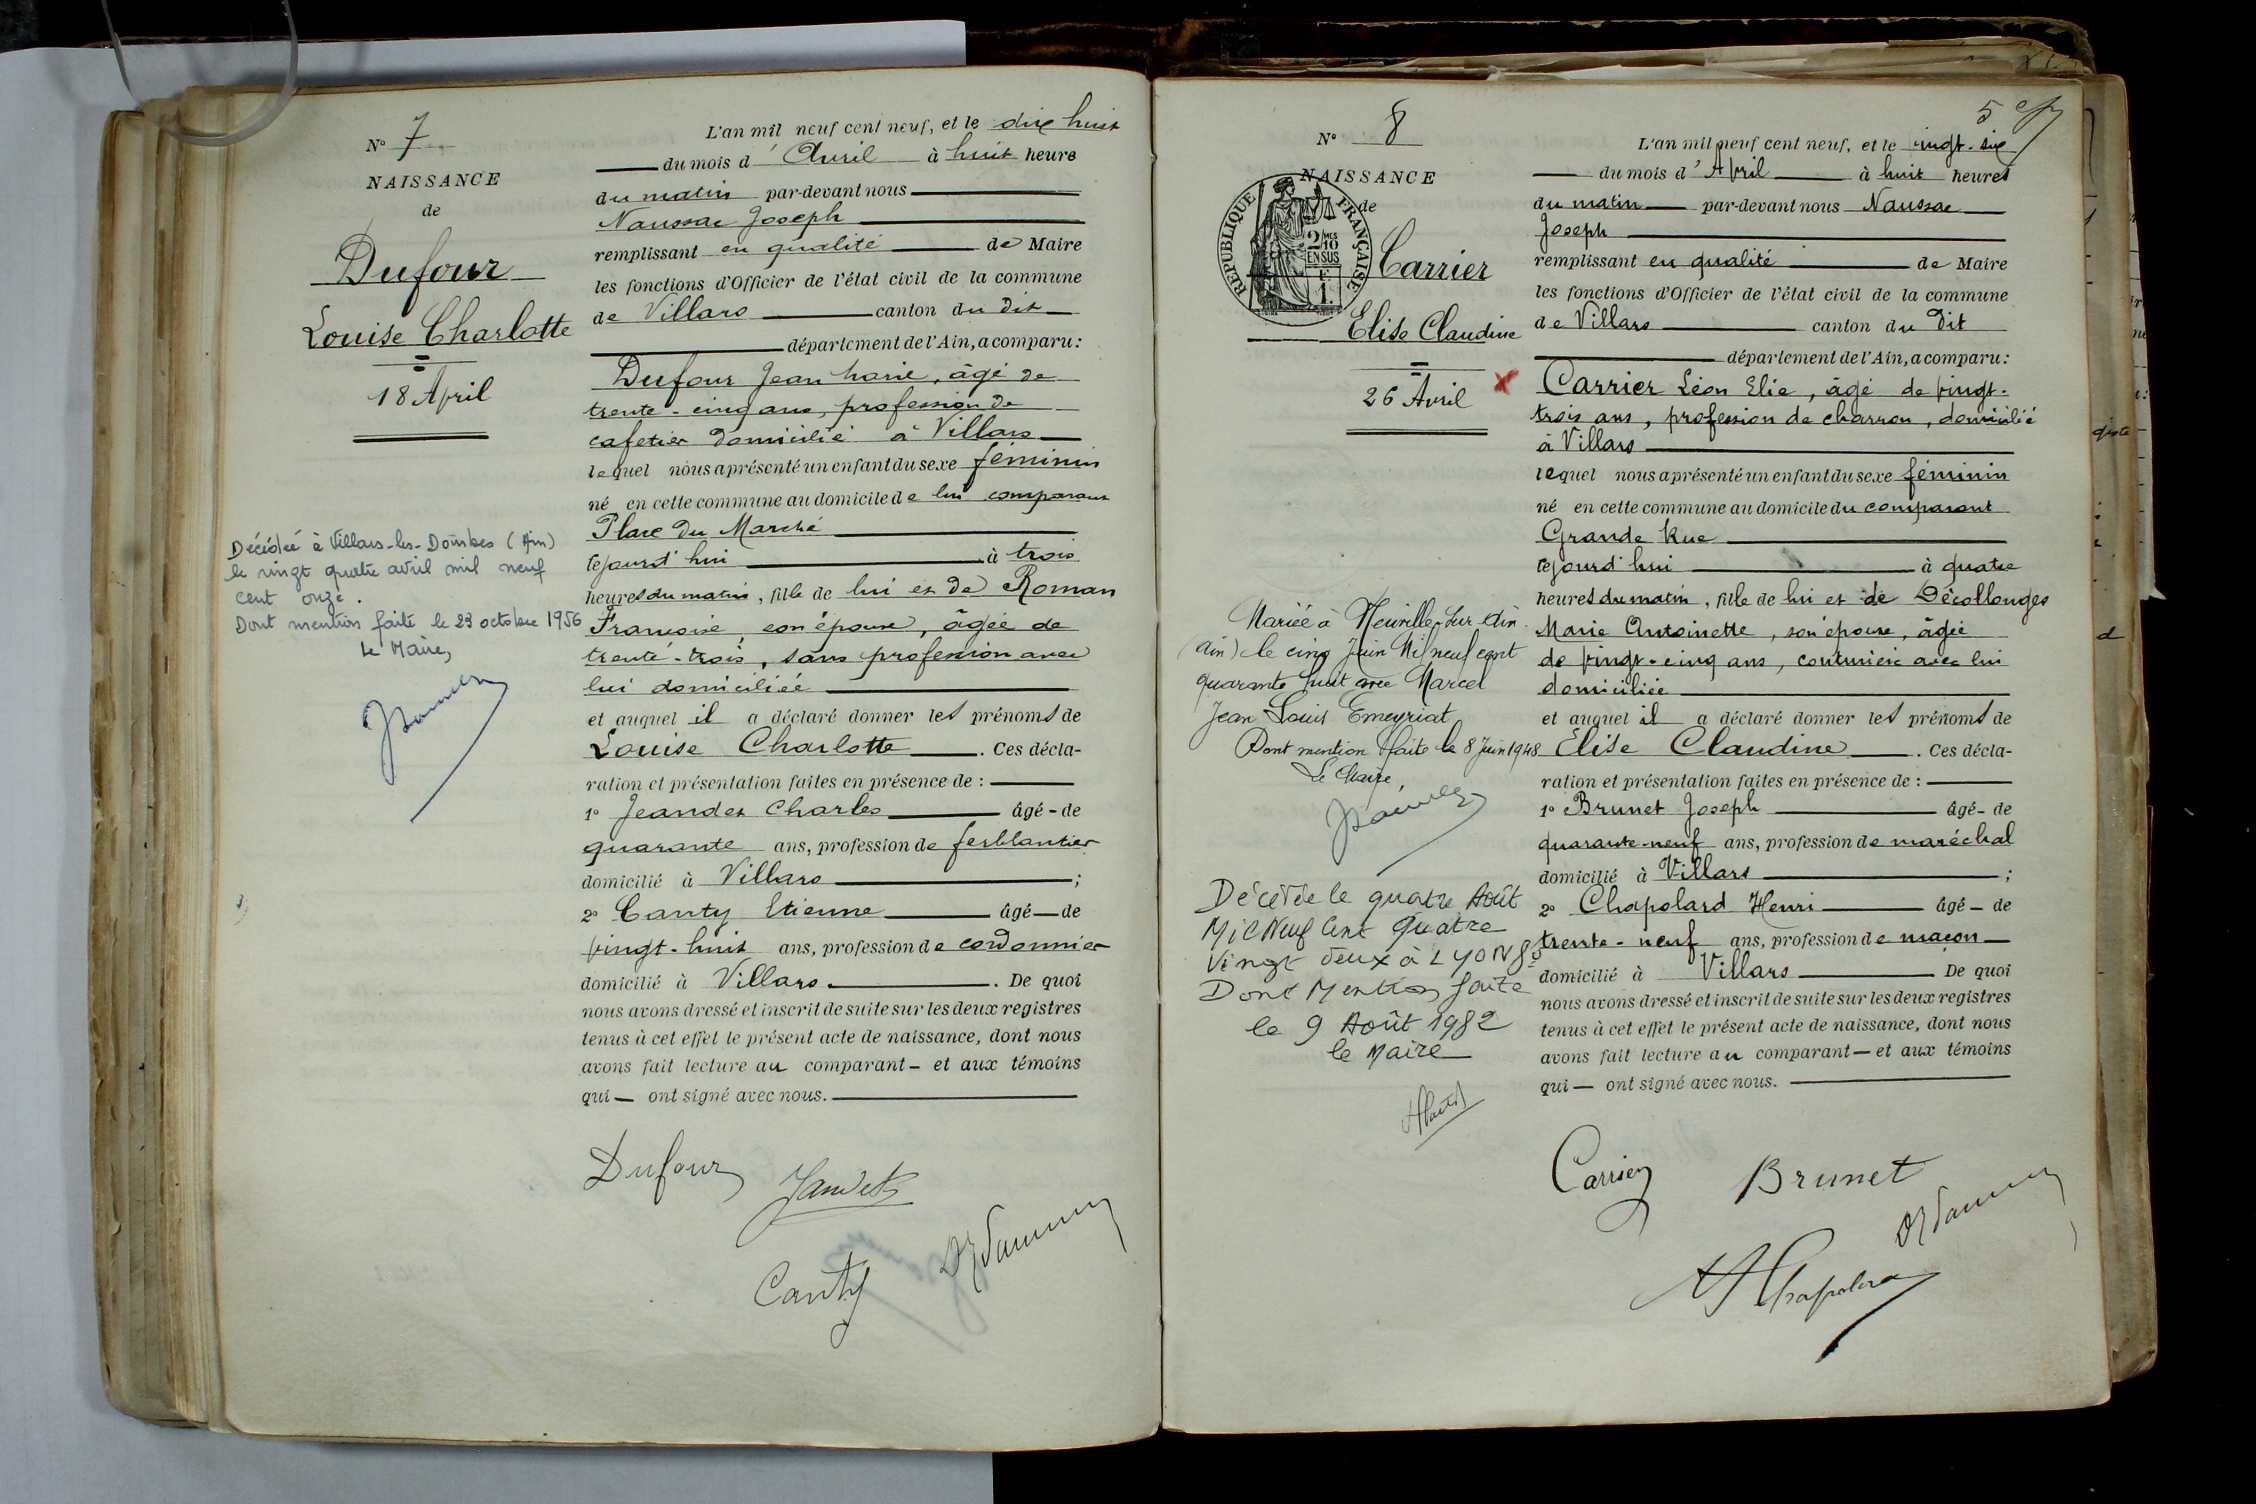 N° 7
NAISSANCE
de
Dufour
Louise Charlotte
18 April
Décédée à Villars-les-Dombes (Ain)
le vingt quatre avril mil neuf
cent onze.
Dont mention faite le 23 octobre 1956
Le Maire,
L'an mil neuf cent neuf, et le dix huit
du mois d'Avril à huit heures
du matin par-devant nous
Naussac Joseph
remplissant en qualité de Maire
les fonctions d'Officier de l'état civil de la commune
de Villars canton du dit
département de l'Ain, a comparu:
Dufour Jean Marie, âgé de
trente-cinq ans, profession de
cafetier domicilié à Villars
lequel nous a présenté un enfant du sexe féminin
né en cette commune au domicile de lui comparant
Place du Marché
cejourd'hui à trois
heures du matin, fille de lui et de Roman
Françoise, son épouse, âgée de
trente-trois, sans profession avec
lui domiciliée
et auquel il a déclaré donner les prénoms de
Louise Charlotte. Ces décla-
ration et présentation faites en présence de:
1° Jeandet Charles âgé-de
quarante ans, profession de ferblantier
domicilié à Villars;
2° Canty Etienne âgé-de
vingt-huit ans, profession de cordonnier
domicilié à Villars. De quoi
nous avons dressé et inscrit de suite sur les deux registres
tenus à cet effet le présent acte de naissance, dont nous
avons fait lecture au comparant - et aux témoins
qui - ont signé avec nous.
Dufour
Jandet
Canty
5
N° 8
NAISSANCE
de
REPUBLIQUE FRANÇAISE
2/10 EN SUS
Carrier
Elise Claudine
26 Avril
Mariée à Neuville-sur-Ain
(Ain) le cinq Juin Mil neuf cent
quarante huit avec Marcel
Jean Louis Emeyriat
Dont mention faite le 8 Juin 1948
Le Maire,
Décédée le quatre Août
Mil Neuf Cent Quatre
Vingt deux à LYON 8e
Dont Mention faite
le 9 Août 1982
le Maire
L'an mil neuf cent neuf, et le vingt-six
du mois d'April à huit heures
du matin par-devant nous Naussac
Joseph
remplissant en qualité de Maire
les fonctions d'Officier de l'état civil de la commune
de Villars canton du dit
département de l'Ain, a comparu:
Carrier Léon Elie, âgé de vingt-
trois ans, profession de charron, domicilié
à Villars
lequel nous a présenté un enfant du sexe féminin
né en cette commune au domicile du comparant
Grande Rue
cejourd'hui à quatre
heures du matin, fille de lui et de Décollonges
Marie Antoinette, son épouse, âgée
de vingt-cinq ans, couturière avec lui
domiciliée
et auquel il a déclaré donner les prénoms de
Elise Claudine. Ces décla-
ration et présentation faites en présence de:
1° Brunet Joseph âgé-de
quarante-neuf ans, profession de maréchal
domicilié à Villars;
2° Chapolard Henri âgé-de
trente-neuf ans, profession de maçon
domicilié à Villars De quoi
nous avons dressé et inscrit de suite sur les deux registres
tenus à cet effet le présent acte de naissance, dont nous
avons fait lecture au comparant - et aux témoins
qui - ont signé avec nous.
Carrier
Brunet